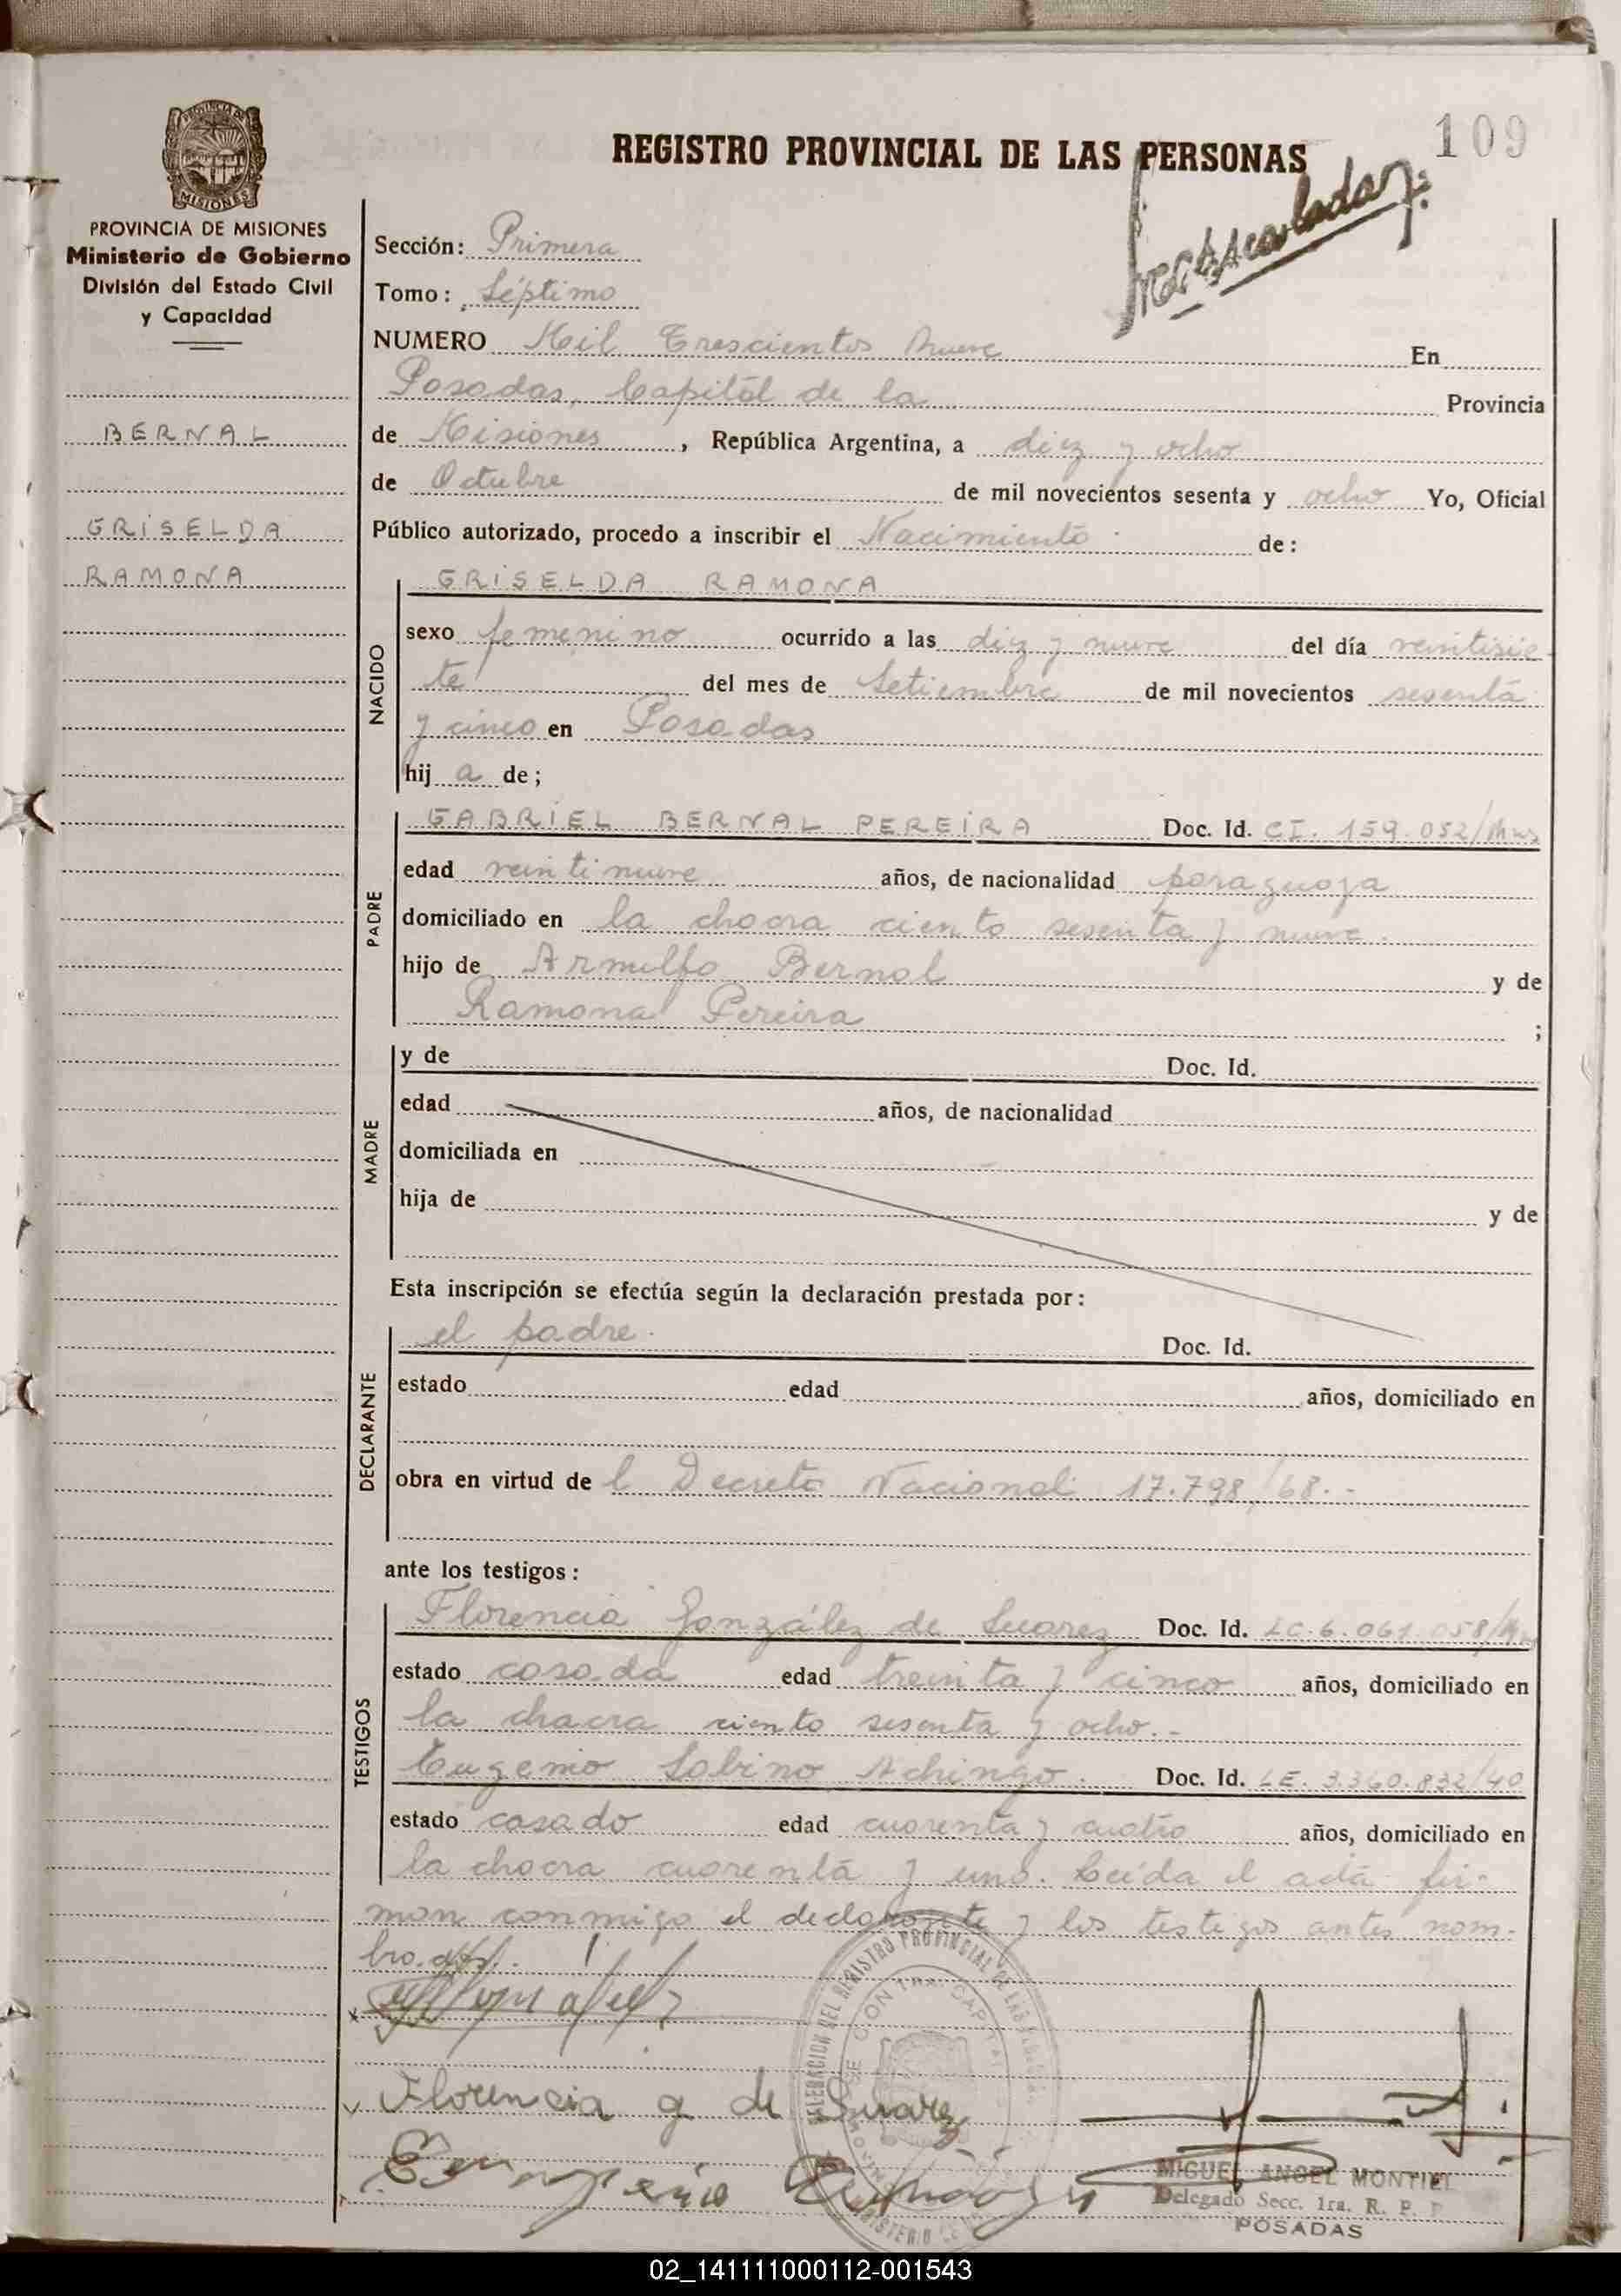 109
REGISTRO PROVINCIAL DE LAS PERSONAS
PROVINCIA DE MISIONES
Ministerio de Gobierno
División del Estado Civil
y Capacidad
BERNAL
GRISELDA
RAMONA
Sección: Primera
Tomo: Séptimo
NUMERO Mil Trescientos Nueve En
Posadas, Capital de la Provincia
de Misiones, República Argentina, a diez y ocho
de Octubre de mil novecientos sesenta y ocho Yo, Oficial
Público autorizado, procedo a inscribir el Nacimiento de:
NACIDO
GRISELDA RAMONA
sexo femenino ocurrido a las diez y nueve del día veintisie-
te del mes de Setiembre de mil novecientos sesenta
y cinco en Posadas
hij a de;
PADRE
GABRIEL BERNAL PEREIRA Doc. Id. CI. 159.052/Mns
edad veintinueve años, de nacionalidad paraguaya
domiciliado en la chacra ciento sesenta y nueve
hijo de Arnulfo Bernal y de
Ramona Pereira ;
MADRE
y de Doc. Id.
edad años, de nacionalidad
domiciliada en
hija de y de
Esta inscripción se efectúa según la declaración prestada por:
DECLARANTE
el padre. Doc. Id.
estado edad años, domiciliado en
obra en virtud de l Decreto Nacional 17.798/68.-
ante los testigos:
TESTIGOS
Florencia González de Suarez Doc. Id. LC. 6.061.058/
estado casada edad treinta y cinco años, domiciliado en
la chacra ciento sesenta y ocho.-
Eugenio Sabino Achingo. Doc. Id. LE. 3.360.832/40
estado casado edad cuarenta y cuatro años, domiciliado en
la chacra cuarenta y uno. Leída el acta fir-
man conmigo el declarante y los testigos antes nom-
brados.
Florencia g de Suarez
Eugenio
MIGUEL ANGEL MONTIEL
Delegado Secc. 1ra. R. P. P
POSADAS
02_141111000112-001543